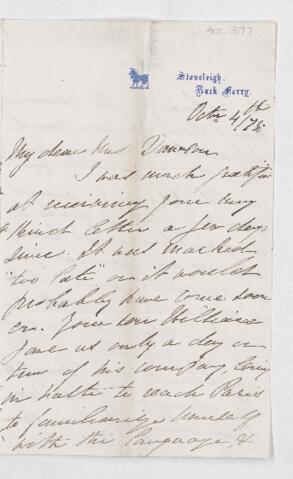 Acc. 377
Stoneleigh,
Rock Ferry.
Octr 4th/78
My dear Mrs Dawson
I was much gratified
at receiving your very
kind letter a few days
since. It was marked
"too late" or it would
probably have come soon
er. Your son William
gave us only a day or
two of his company, being
in haste to reach Paris
to familiarize himself
with the language, &